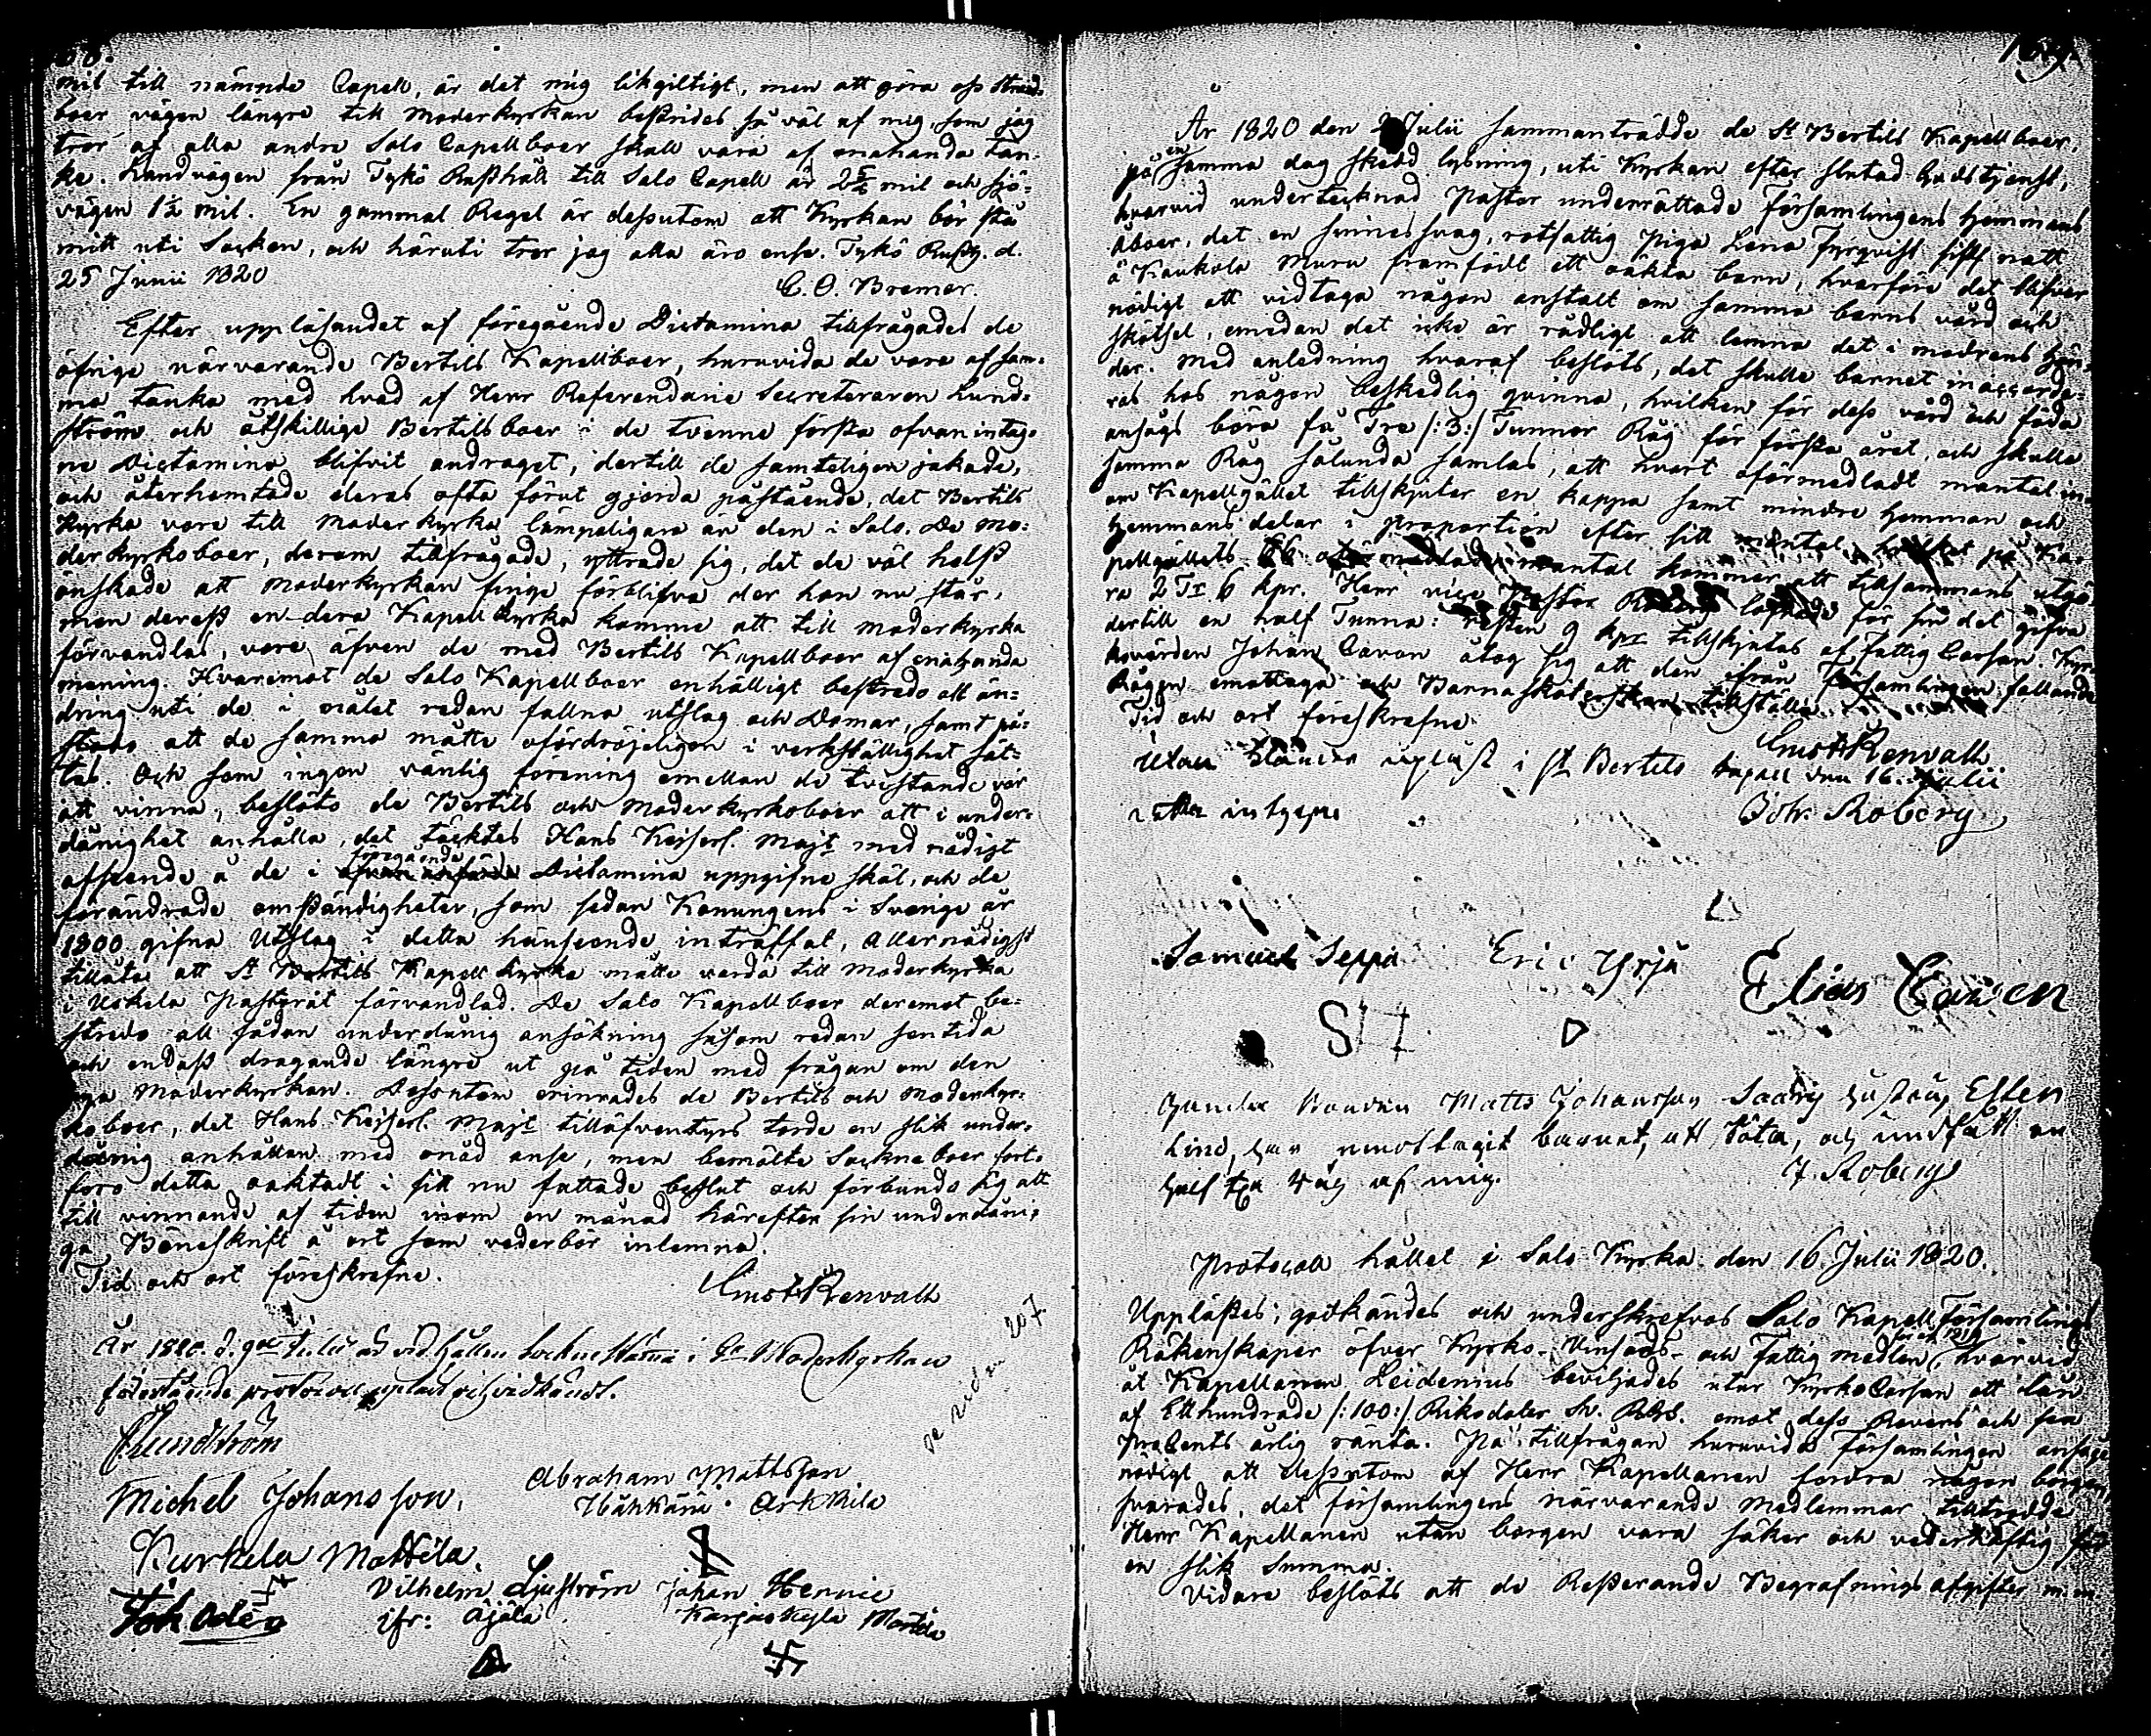 mil till nämnde Capell, är det mig likgiltigt, men att göra oss Strand-
boer vägen längre till Moderkyrkan bestrides så väl af mig, som jag
tror af alla andre Salo Capellboer skall vara af enahanda tan-
ke. Landvägen från Tykö Rusthåll till Salo Capell är 2 mil och sjö-
vägen 1½ mil. En gammal Regel är dessutom att Kyrkan bör stå
mitt uti Socken, och häruti tror jag alla äro ense. Tykö Rusth. d.
25 Junii 1820
C. O. Bremer.
Efter uppläsandet af föregående Dictamina tillfrågades de
öfrige närvarande Bertils Kapellboer, huruvida de vore af sam-
ma tanka med hvad af Herr Referendarie Secreteraren Lund-
ström och åtskillige Bertilsboer i de tvenne första ofvanintag-
ne Dictamina blifvit andraget, dertill de samteligen jakade,
och återhemtade deras ofta förut gjorda påstående, det Bertils
Kyrka vore till Moderkyrka lämpeligare än den i Salo. De Mo-
derkyrkoboer, derom tillfrågade, yttrade sig, det de väl helst
önskade att Moderkyrkan finge förblifva der han nu står,
men derest en dera Kapellkyrka komme att till Moderkyrka
förvandlas, vore äfven de med Bertils Kapellboer af enahanda
mening. Hvaremot de Salo Kapellboer enhälligt bestredo all än-
dring uti de i målet redan fallna utslag och Domar, samt på-
stodo att de samma måtte ofördröjeligen i verkställighet sät-
tas. Och som ingen vänlig förening emellan de tvistande var
att vinna, beslöto de Bertils och Moderkyrkoboer att i under-
dånighet anhålla, det täcktes Hans Kejserl. Majt med nådigt
föregående
afseende å de i Dictamina uppgifne skäl, och de
förändrade omständigheter, som sedan Konungens i Sverige år
1800 gifna Utslag i detta hänseende inträffat, Allernådigst
tillåta att St Bertils Kapell Kyrka måtte varda till Moderkyrka
i Uskela Pastorat förvandlad. De Salo Kapellboer deremot be-
stredo all sådan underdånig ansökning såsom redan sentida
och endast dragande längre ut på tiden med frågan om den
nya Moderkyrkan. Dessutom erinrades de Bertils och Moderkyr-
koboer, det Hans Kejserl. Majt tilläfventyrs torde en slik under-
dånig anhållan med onåd anse, men bemälte Sockneboer fort-
foro detta oaktadt i sitt nu fattade beslut och förbundo sig att
till vinnande af tiden inom en månad härefter sin underdåni-
ga Böneskrift å ort som vederbör inlemna.
Tid och ort föreskrefne.
Gust. Renvall
År 1820 d. 9de Julii vid hållen Sockne Stämma i Moderkyrkan
förestående protocoll upläst och vidkändt.
Lundström
Michel Johansson,
Abraham Mattsson
Arkkila
Kurkela Mattila.
Vilhelm Ljuström
Johan Hennie
Ajala
Mattila
År 1820 den 2 Julii sammanträdde de St Bertils Kapellboer,
på en samma dag skedd lysning, uti Kyrkan efter slutad Gudstjenst,
hvarvid undertecknad Pastor underrättade Församlingens Hemmans
åboer, det en sinnessvag, rotfattig Piga Lena Fyrqvist sistl. natt
å Kaukola Muru framfödt ett oäkta barn, hvarföre det blifver
nödigt att vidtaga någon anstalt om samma barns vård och
skötsel, emedan det icke är rådligt att lemna det i modrens hän-
der. Med anledning hvaraf beslöts, det skulle barnet inaccorde-
ras hos någon beskedlig qvinna, hvilken för dess vård och föda
ansågs böra få Tre /:3:/ Tunnor Råg för första året, och skulle
samma Råg sålunda samlas, att hvart oförmedladt mantal in-
om Kapellgället tillskjuter en kappa samt mindre hemman och
hemmansdelar i proportion efter sitt mantal, hvilket på Ka-
pellgällets 66 oförmedlade mantal kommer att tillsammans utgö-
ra 2 Tr 6 kpr. Herr vice Pastor Roberg lofvade för sin del gifva
dertill en half Tunna: resten 9 kpr tillskjutas af Fattig Cassan. Kyr-
kovärden Johan Cavon åtog sig att den ifrån Församlingen fallande
Rågen emottaga och Barnasköterskan tillställa.
Tid och ort föreskrefne.
Gust. Renvall
uplyst i St Bertils Kapell den 16. Julii
Joh. Roberg
Samuel Seppä
Eric Yrjä
Elias Cavén
SH
Matts Johansson
Lind, har emottagit barnet, att sköta, och undfått en
half tna råg af mig.
J. Roberg
Protocoll hållet i Salo Kyrka den 16 Julii 1820.
Upplästes, godkändes och underskrefvos Salo Kapell Församlings
Räkenskaper öfver Kyrko- Vinsäds- och Fattig medlen för år 1819, hvarvid
åt Kapellanen Leidenius beviljades utur Kyrko Cassan ett lån
af Etthundrade /:100:/ Riksdaler Sv. Rgs. emot dess Revers och sex
procents årlig ränta. På tillfrågan huruvida Församlingen ansåge
nödigt att dessutom af Herr Kapellanen fordra någon borgen,
svarades, det församlingens närvarande medlemmar tilltrodde
Herr Kapellanen utan borgen vara säker och vederhäftig för
en slik Summa.
Vidare beslöts att de Resterande Begrafnings afgifter m.m